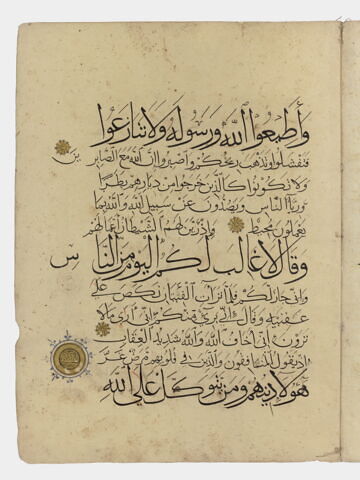 وأطيعوا الله ورسوله ولا تنازعوا
فتفشلوا وتذهب ريحكم واصبروا إن الله مع الصابرين
ولا تكونوا كالذين خرجوا من ديارهم بطرا
ورئاء الناس ويصدون عن سبيل الله والله بما
يعملون محيط وإذ زين لهم الشيطان أعمالهم
وقال لا غالب لكم اليوم من الناس
وإني جار لكم فلما تراءت الفئتان نكص على
عقبيه وقال إني بريء منكم إني أرى ما لا
ترون إني أخاف الله والله شديد العقاب
إذ يقول المنافقون والذين في قلوبهم مرض غر
هؤلاء دينهم ومن يتوكل على الله